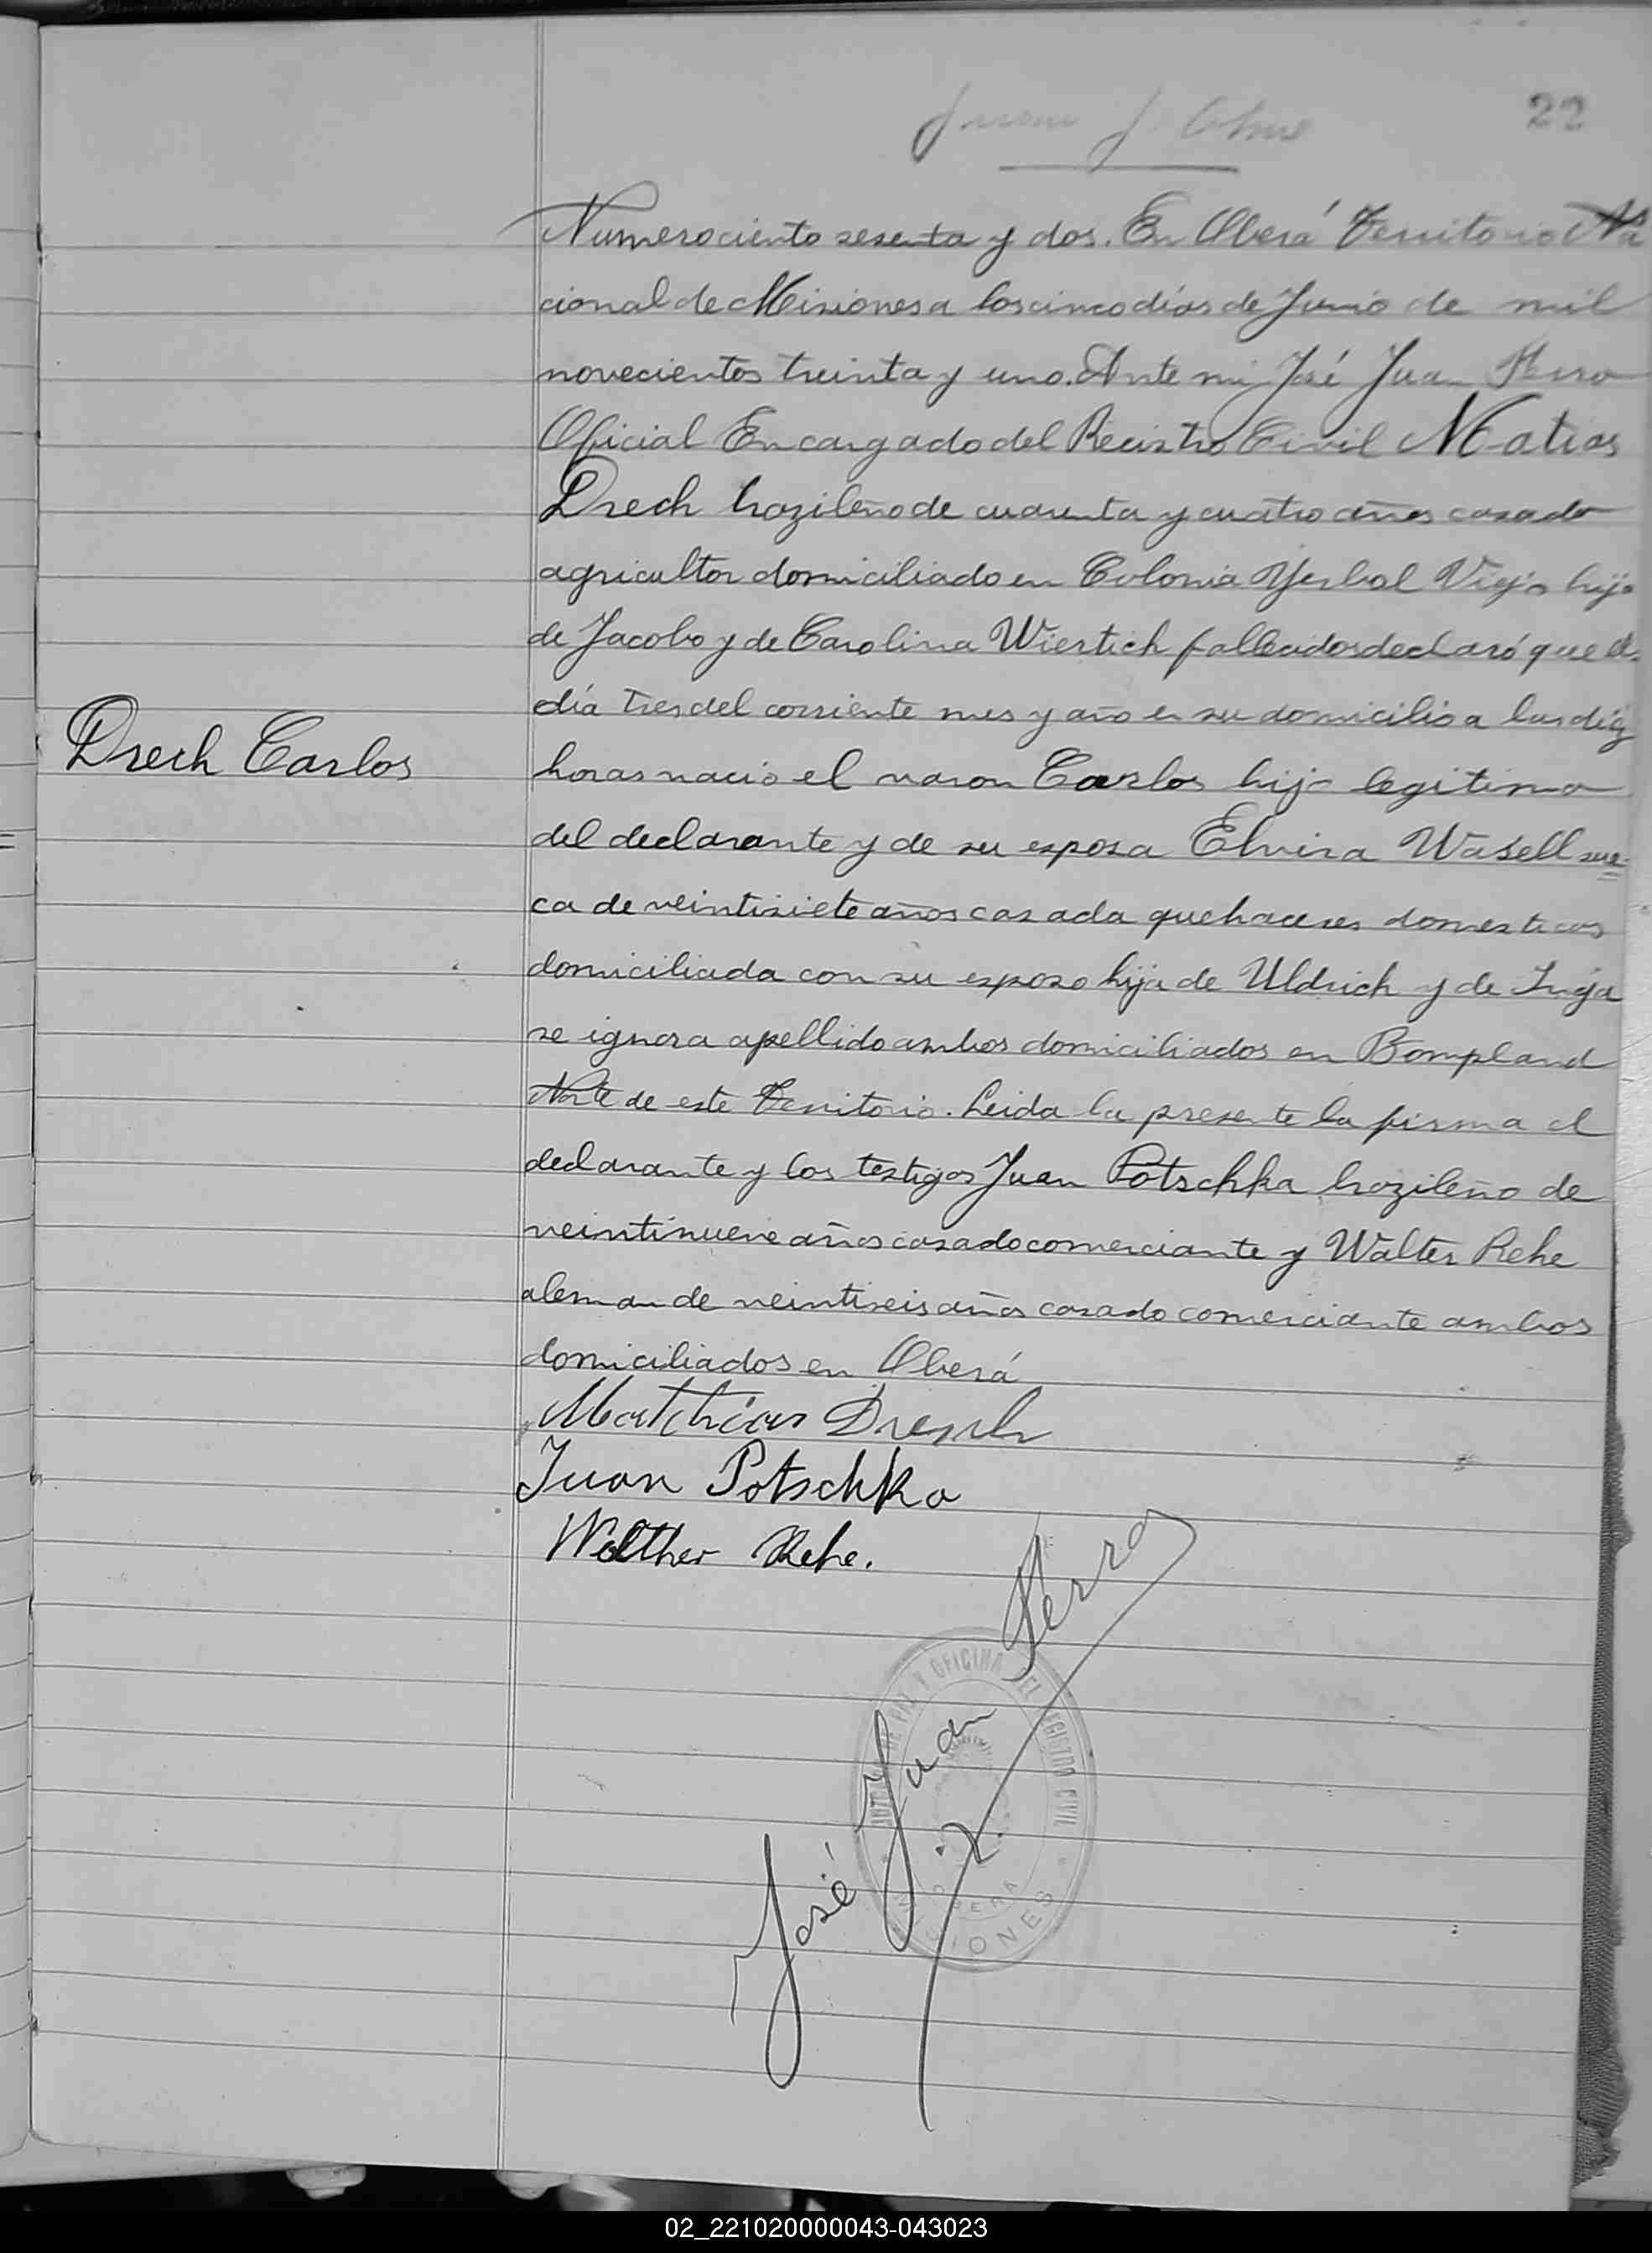 22
Numero ciento sesenta y dos. En Oberá Territorio Na
cional de Misiones a los cinco días de Junio de mil
novecientos treinta y uno. Ante mi José Juan Ferro
Oficial Encargado del Recistro Civil Matias
Drech brazileño de cuarenta y cuatro años casado
agricultor domiciliado en Colonia Yerbal Viejo hijo
de Jacobo y de Carolina Wiertich fallecidos declaró que el
día tres del corriente mes y año en su domicilio a las diez
Drech Carlos
horas nacio el varon Carlos hijo legitimo
del declarante y de su esposa Elvira Wasell sue-
ca de veintisiete años casada quehaceres domesticos
domiciliada con su esposo hija de Uldrich y de Inga
se ignora apellido ambos domiciliados en Bompland
Norte de este Territorio. Leida la presente la firma el
declarante y los testigos Juan Potschka brazileño de
veintinueve años casado comerciante y Walter Rehe
aleman de veintiseis años casado comerciante ambos
domiciliados en Oberá
Matthias Dresch
Juan Potschka
Walther Rehe.
José Juan Ferro
PAZ Y OFICINA DEL REGISTRO CIVIL
OBERA
MISIONES
02_221020000043-043023